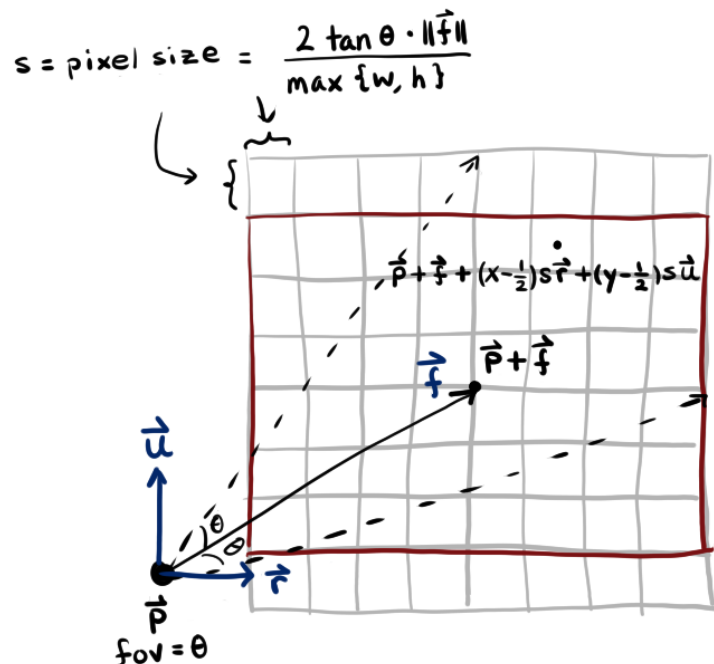 s = pixel size = 2 tan θ · ‖f⃗‖ / max {w, h}
p⃗ + f⃗ + (x-½)sr⃗ + (y-½)su⃗
f⃗
p⃗ + f⃗
u⃗
θ
θ
r⃗
p⃗
fov = θ